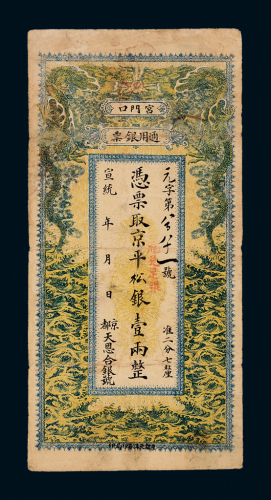 宮門口
通用銀票
元字第 八十一號
憑票取京平松銀壹兩整
宣統 年 月 日
准二分七厘
京都天恩合銀號